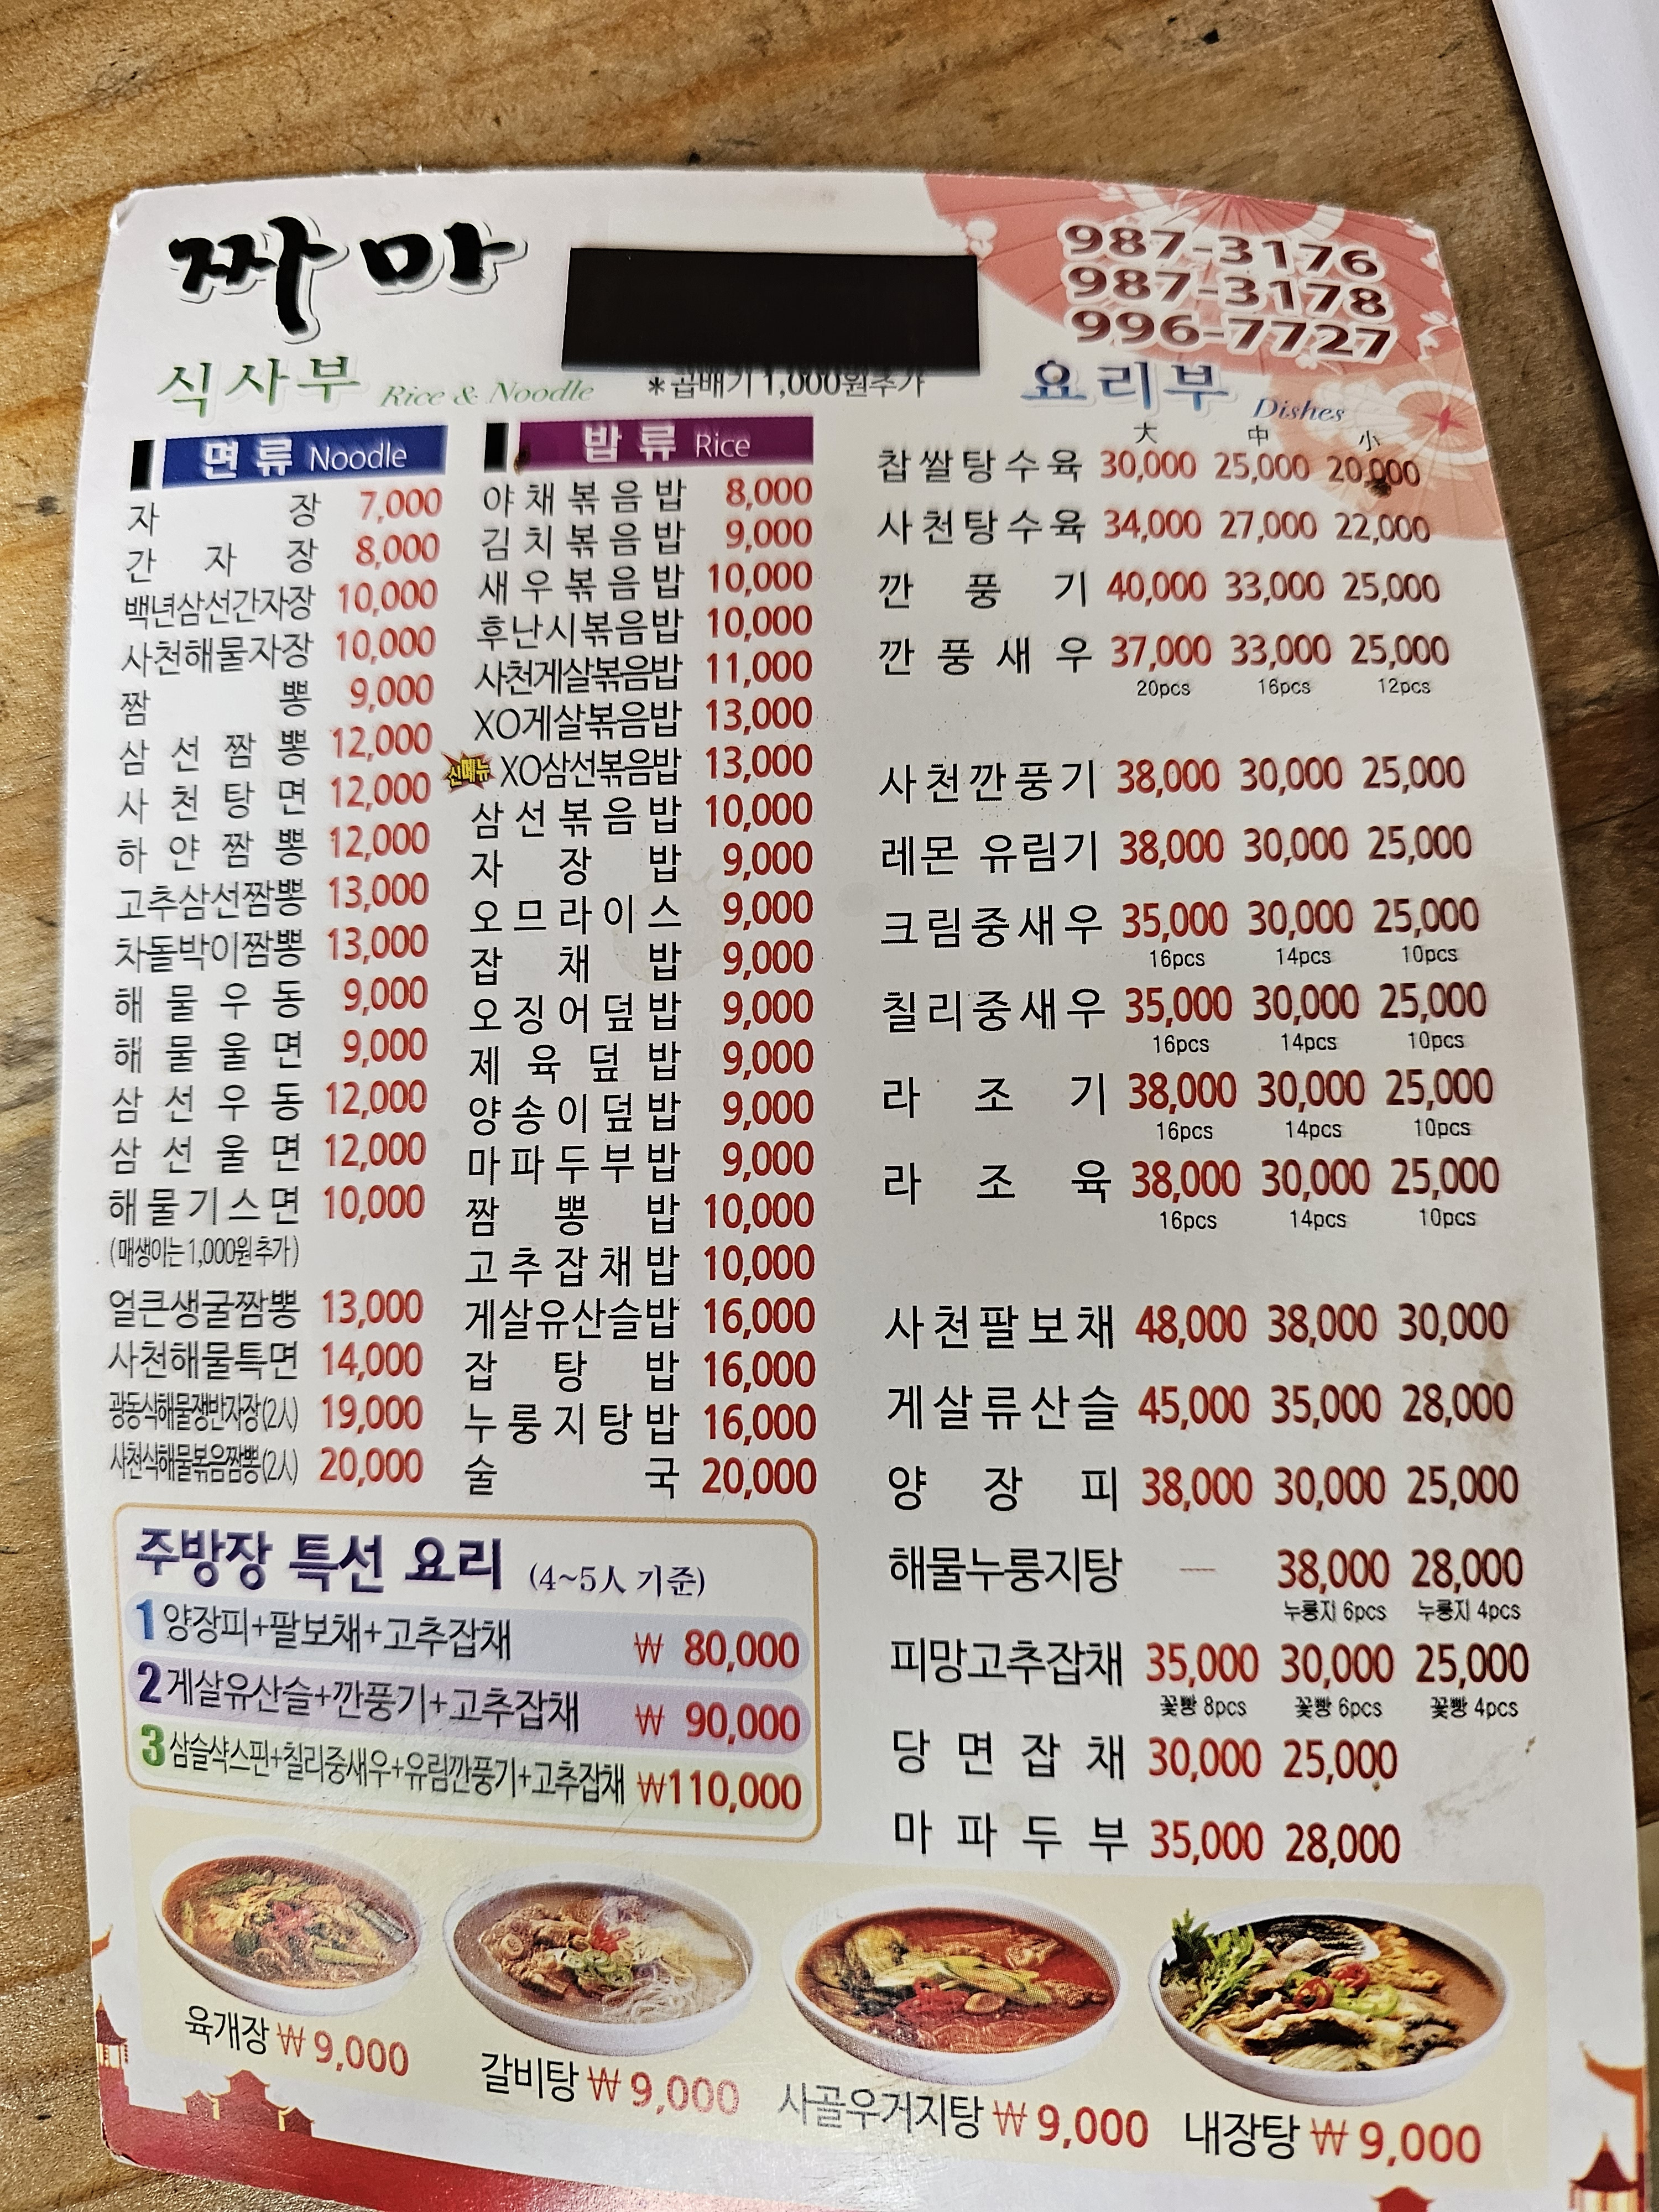 짜마
987-3176
987-3178
996-7727
식사부 Rice & Noodle
*곱배기 1,000원추가
면류 Noodle
자장 7,000
간자장 8,000
백년삼선간자장 10,000
사천해물자장 10,000
짬뽕 9,000
삼선짬뽕 12,000
사천탕면 12,000
하얀짬뽕 12,000
고추삼선짬뽕 13,000
차돌박이짬뽕 13,000
해물우동 9,000
해물울면 9,000
삼선우동 12,000
삼선울면 12,000
해물기스면 10,000
(매생이는 1,000원 추가)
얼큰생굴짬뽕 13,000
사천해물특면 14,000
광동식해물쟁반자장(2人) 19,000
사천식해물볶음짬뽕(2人) 20,000
밥류 Rice
야채볶음밥 8,000
김치볶음밥 9,000
새우볶음밥 10,000
후난시볶음밥 10,000
사천게살볶음밥 11,000
XO게살볶음밥 13,000
신메뉴 XO삼선볶음밥 13,000
삼선볶음밥 10,000
자장밥 9,000
오므라이스 9,000
잡채밥 9,000
오징어덮밥 9,000
제육덮밥 9,000
양송이덮밥 9,000
마파두부밥 9,000
짬뽕밥 10,000
고추잡채밥 10,000
게살유산슬밥 16,000
잡탕밥 16,000
누룽지탕밥 16,000
술국 20,000
요리부 Dishes
大 中 小
찹쌀탕수육 30,000 25,000 20,000
사천탕수육 34,000 27,000 22,000
깐풍기 40,000 33,000 25,000
깐풍새우 37,000 33,000 25,000
20pcs 16pcs 12pcs
사천깐풍기 38,000 30,000 25,000
레몬 유림기 38,000 30,000 25,000
크림중새우 35,000 30,000 25,000
16pcs 14pcs 10pcs
칠리중새우 35,000 30,000 25,000
16pcs 14pcs 10pcs
라조기 38,000 30,000 25,000
16pcs 14pcs 10pcs
라조육 38,000 30,000 25,000
16pcs 14pcs 10pcs
사천팔보채 48,000 38,000 30,000
게살류산슬 45,000 35,000 28,000
양장피 38,000 30,000 25,000
해물누룽지탕 — 38,000 28,000
누룽지 6pcs 누룽지 4pcs
피망고추잡채 35,000 30,000 25,000
꽃빵 8pcs 꽃빵 6pcs 꽃빵 4pcs
당면잡채 30,000 25,000
마파두부 35,000 28,000
주방장 특선 요리 (4~5人 기준)
1 양장피+팔보채+고추잡채 ₩ 80,000
2 게살유산슬+깐풍기+고추잡채 ₩ 90,000
3 삼슬샥스핀+칠리중새우+유림깐풍기+고추잡채 ₩110,000
육개장 ₩ 9,000
갈비탕 ₩ 9,000
사골우거지탕 ₩ 9,000
내장탕 ₩ 9,000